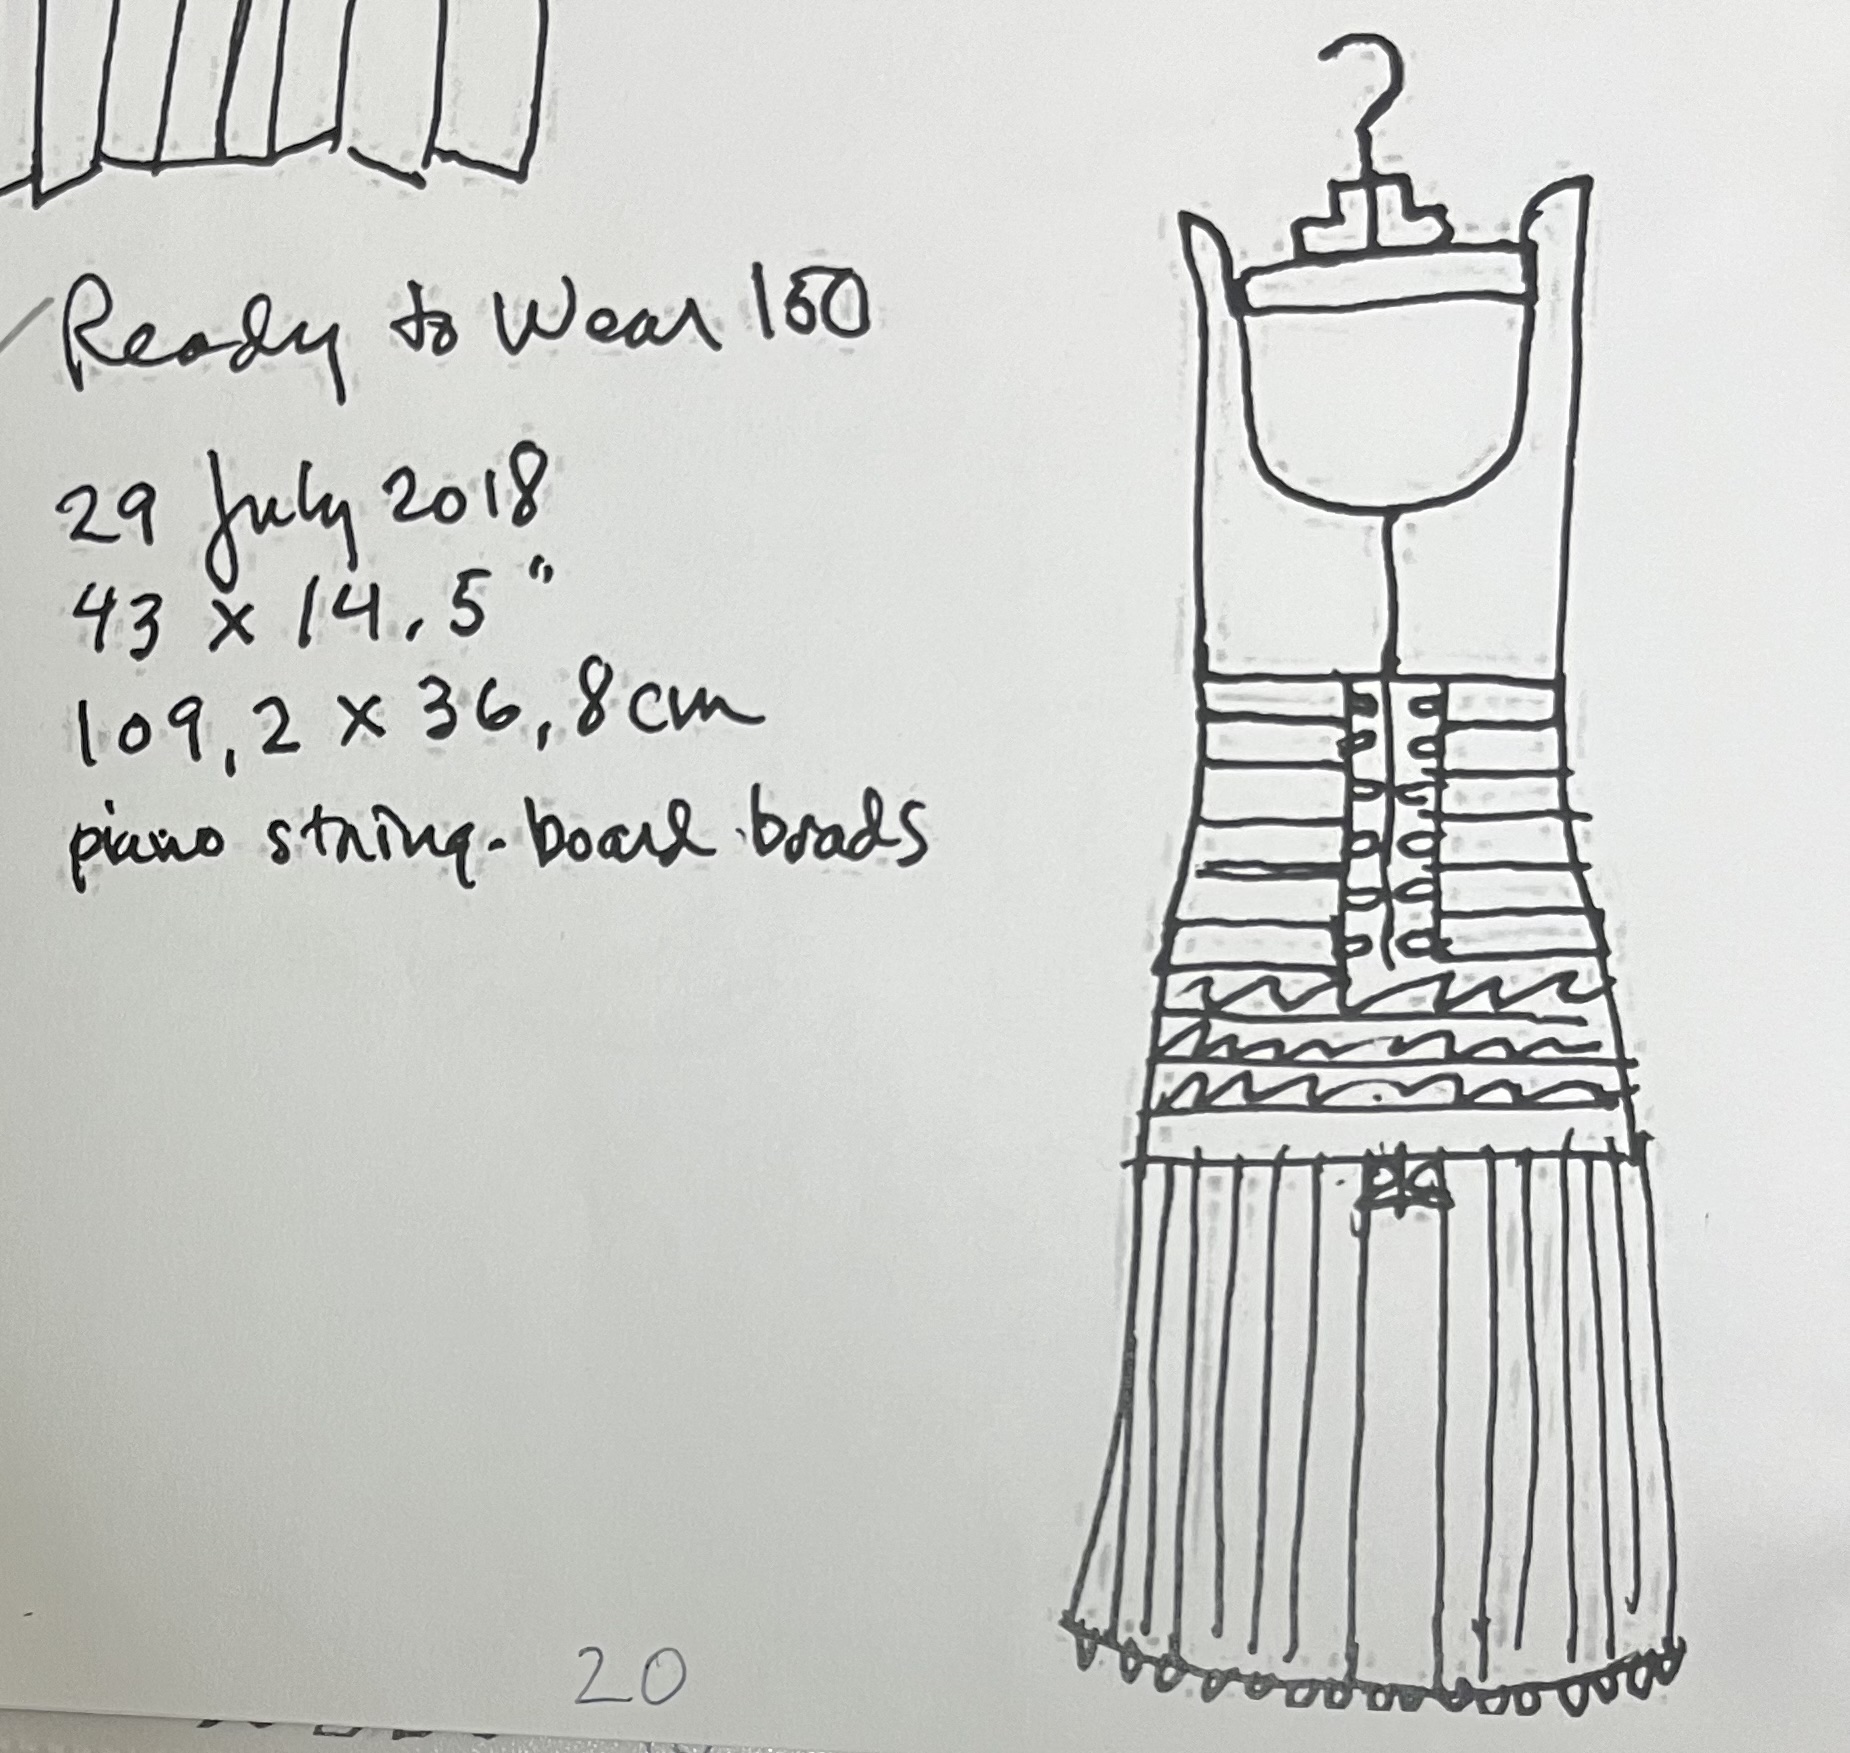 Ready to Wear 150
29 July 2018
43 x 14.5"
109,2 x 36,8 cm
piano string-board brads
20